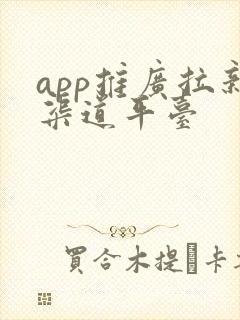 app推廣拉新
渠道平臺
買合木提·卡